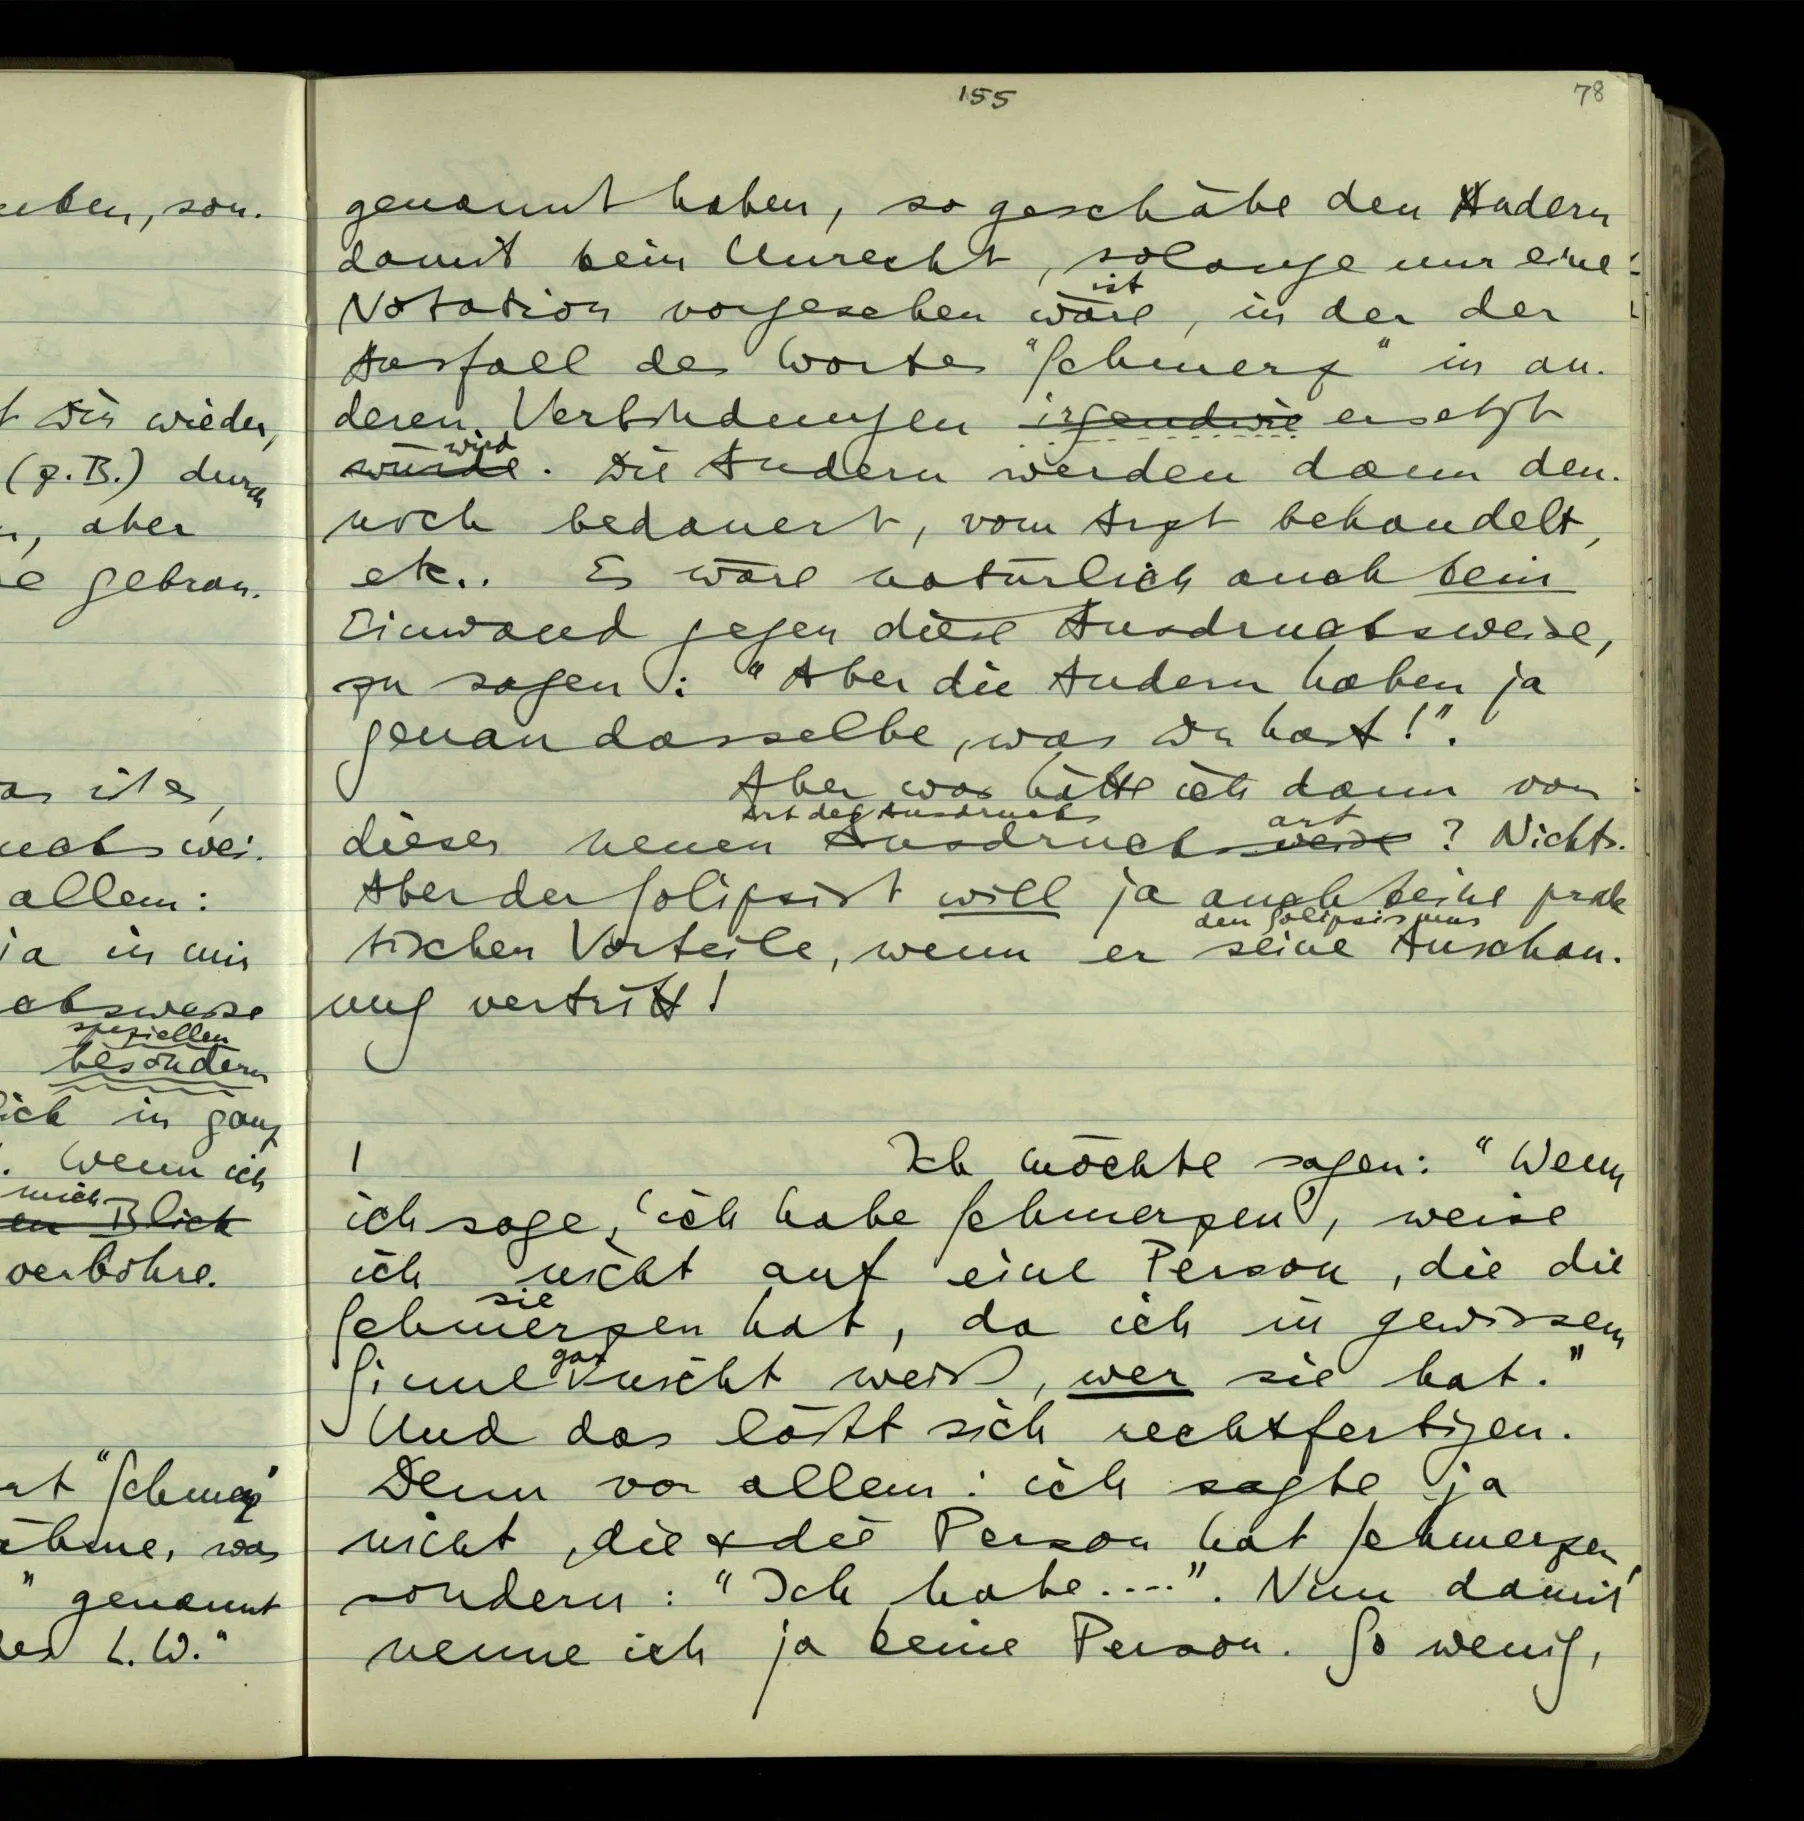 155
78
uben, son-
t Dir wieder,
(z.B.) durch
, aber
e gebrau-
as ist es,
ucks wei-
allem:
ja in mir
cksweise
speziellen
besondern
lich in ganz
. Wenn ich
mich
en Blick
verbohre.
rt "Schmerz"
ähme, was
" genannt
L.W."
genannt haben, so geschähe den Andern
damit kein Unrecht, solange nur eine
ist
Notation vorgesehen wäre, in der der
Ausfall des Wortes "Schmerz" in an-
deren Verbindungen irgendwie ersetzt
wird
würde. Die Andern werden dann den-
noch bedauert, vom Arzt behandelt,
etc.. Es wäre natürlich auch kein
Einwand gegen diese Ausdrucksweise,
zu sagen: "Aber die Andern haben ja
genau dasselbe, was Du hast!".
Aber was hätte ich dann von
Art des Ausdrucks art
dieser neuen Ausdrucksweise? Nichts.
Aber der Solipsist will ja auch keine prak
den Solipsismus
tischen Vorteile, wenn er seine Anschau-
ung vertritt!
I Ich möchte sagen: "Wenn
ich sage, 'ich habe Schmerzen', weise
ich nicht auf eine Person, die die
sie
Schmerzen hat, da ich in gewissem
gar
Sinne nicht weiß, wer sie hat."
Und das läßt sich rechtfertigen.
Denn vor allem: ich sagte ja
nicht, die & die Person hat Schmerzen,
sondern: "Ich habe....". Nun damit
nenne ich ja keine Person. So wenig,